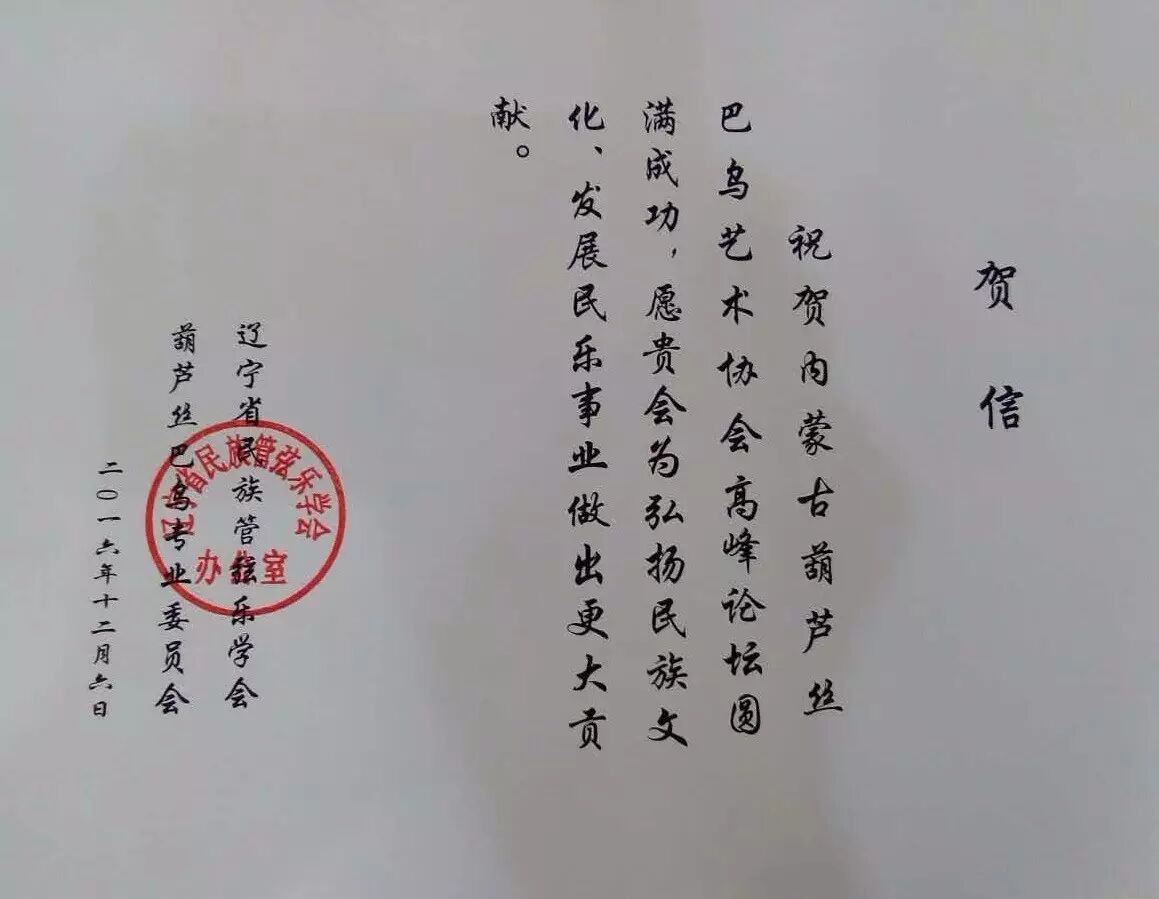 贺信
祝贺内蒙古葫芦丝
巴乌艺术协会高峰论坛圆
满成功，愿贵会为弘扬民族文
化、发展民乐事业做出更大贡
献。
辽宁省民族管弦乐学会
葫芦丝巴乌专业委员会
二〇一六年十二月六日
辽宁省民族管弦乐学会
办公室